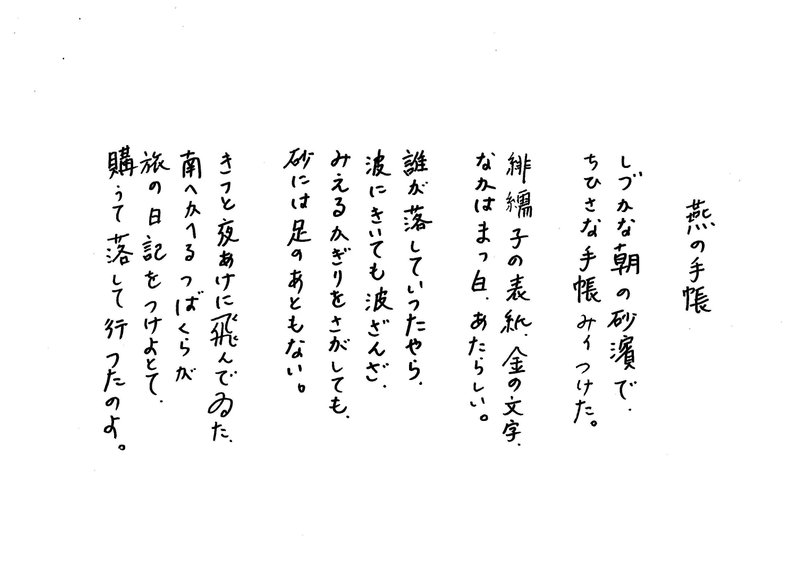 燕の手帳
しづかな朝の砂濱で、
ちひさな手帳みィつけた。
緋繻子の表紙、金の文字、
なかはまつ白、あたらしい。
誰が落していつたやら、
波にきいても波ざんざ、
みえるかぎりをさがしても、
砂には足のあともない。
きつと夜あけに飛んでゐた、
南へかへるつばくらが
旅の日記をつけよとて、
購うて落して行つたのよ。